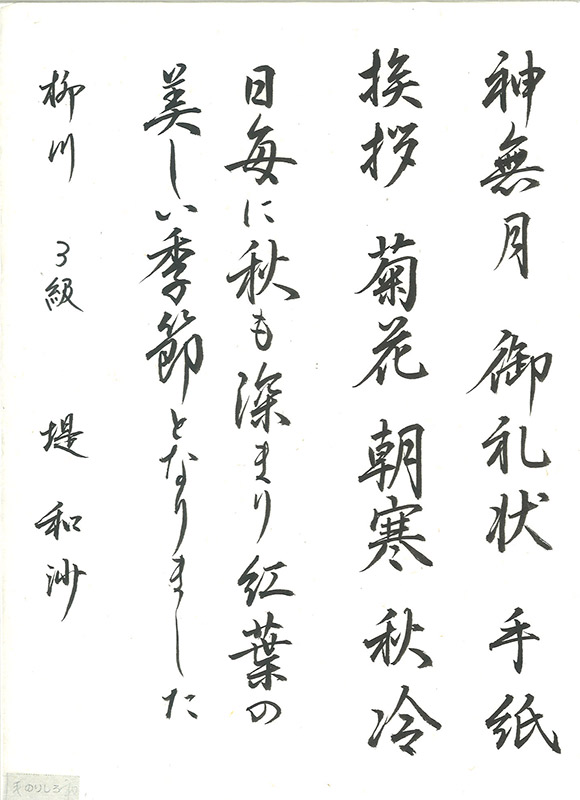 神無月 御礼状 手紙
挨拶 菊花 朝寒 秋冷
日毎に秋も深まり紅葉の
美しい季節となりました
柳川 3級 堤 和沙
のりしろ